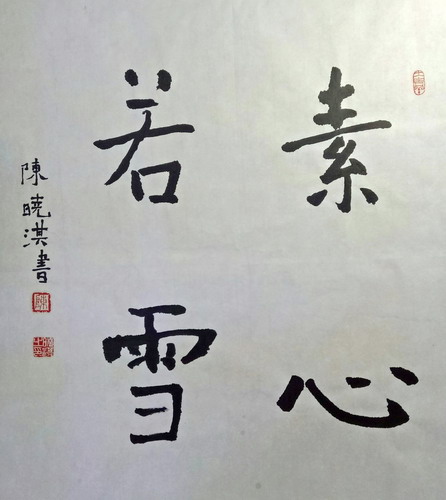 素心
若雪
陳曉淇書